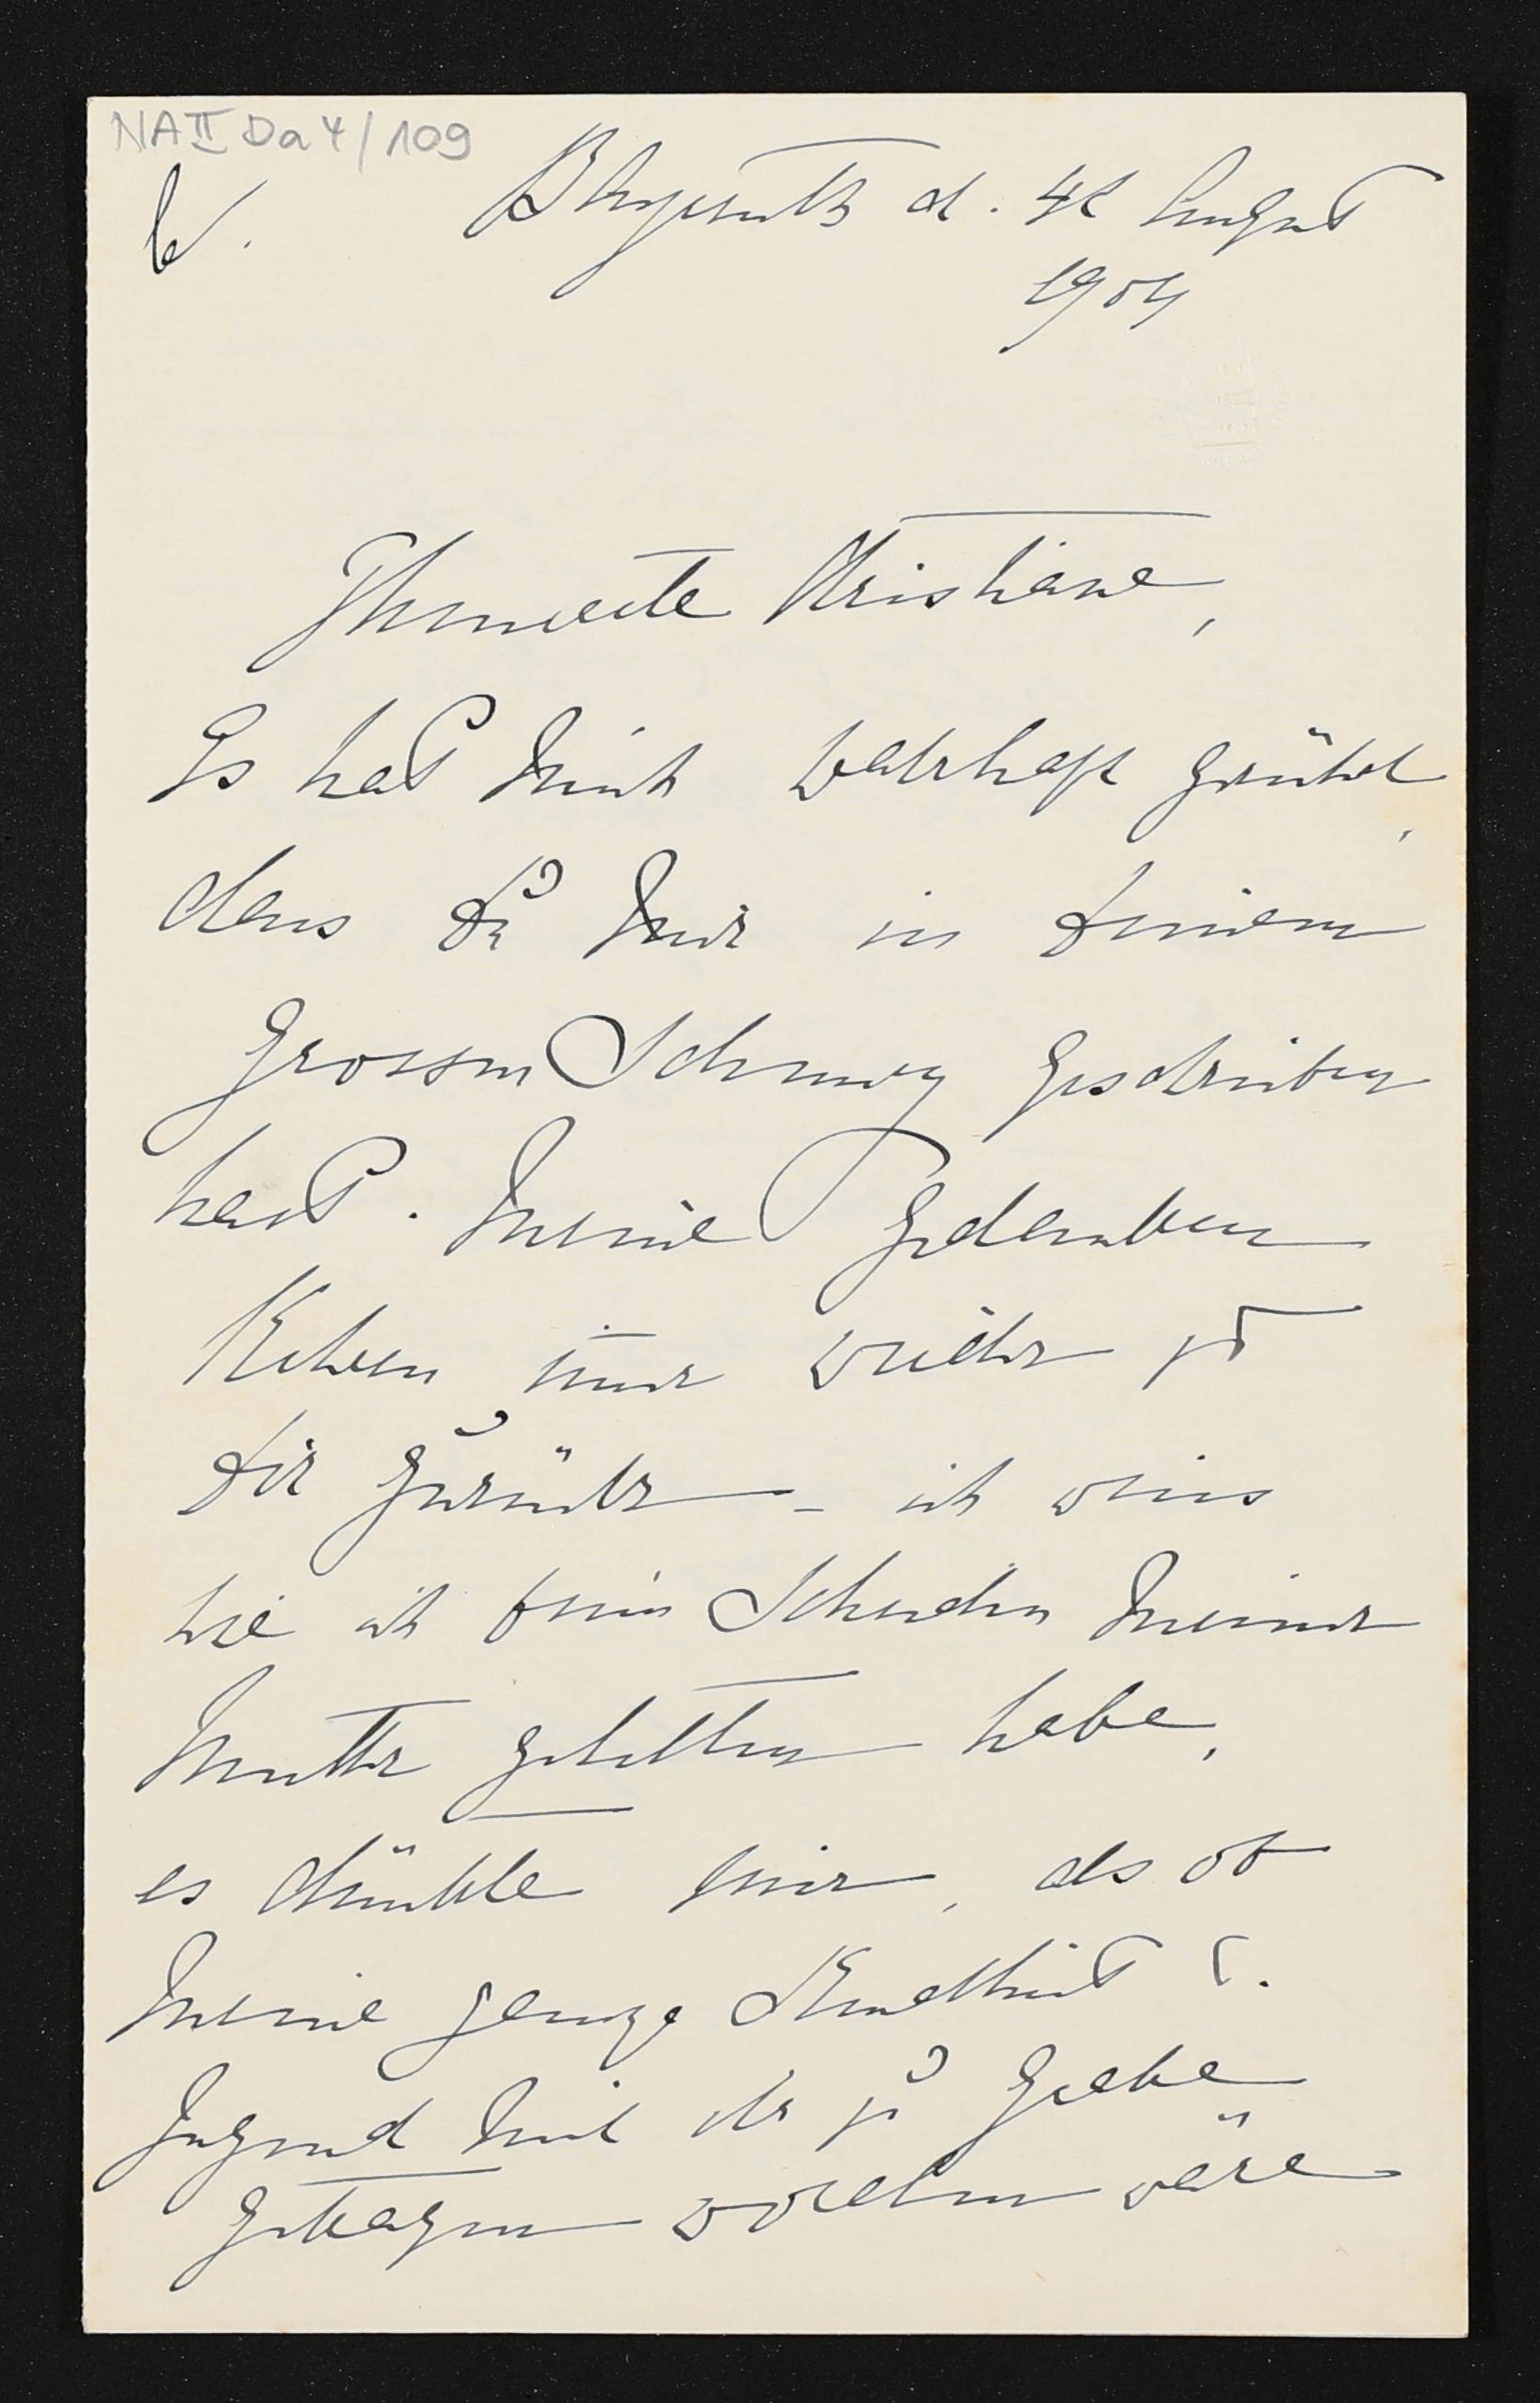 NA II Da 4/109
W. Bayreuth d. 4t August
1904
Thuerste Kristiane,
Es hat mich wahrhaft gerührt,
dass Du mir in Deinem
grossen Schmerz geschrieben
hast. Meine Gedanken
kehren immer wieder zu
Dir zurück – ich weiss
wie ich beim Scheiden meiner
Mutter gelitten habe,
es dünkte mir, als ob
meine ganze Kindheit u.
Jugend mit ihr zu Grabe
getragen worden wäre